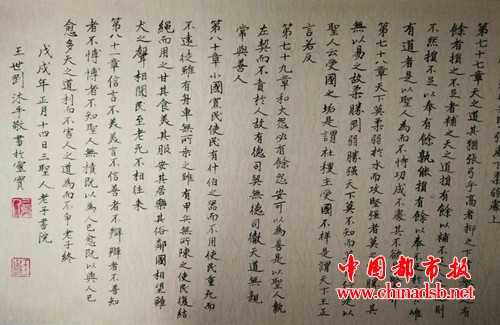 處上
天之道其猶張弓乎高者抑之下
餘者損之不足者補之天之道損有餘以補
不然損不足以奉有餘孰能損有餘以奉
有道者是以聖人為而不恃功成不處其不欲
第七十八章天下莫柔弱於水而攻堅強者莫
無以易之故柔勝剛弱勝強天下莫不知
聖人云受國之垢是謂社稷主受國不祥是謂天下王正
言若反
第七十九章和大怨必有餘怨安可以為善是以聖人執
左契而不責於人故有德司契無德司徹天道無親
常與善人
第八十章小國寡民使民有什伯之器而不用使民重死而
不遠徙雖有舟車無所乘之雖有甲兵無所陳之使民復結
繩而用之甘其食美其服安其居樂其俗鄰國相望雞
犬之聲相聞民至老死不相往來
第八十一章信言不美美言不信善者不辯辯者不善知
者不博博者不知聖人無積既以為人己愈既以與人己
愈多天之道利而不害人之道為而不爭老子終
戊戌年正月十四三聖人老子書院
王世剛沐手敬書於靈寶
中国都市报
www.chinadsb.net